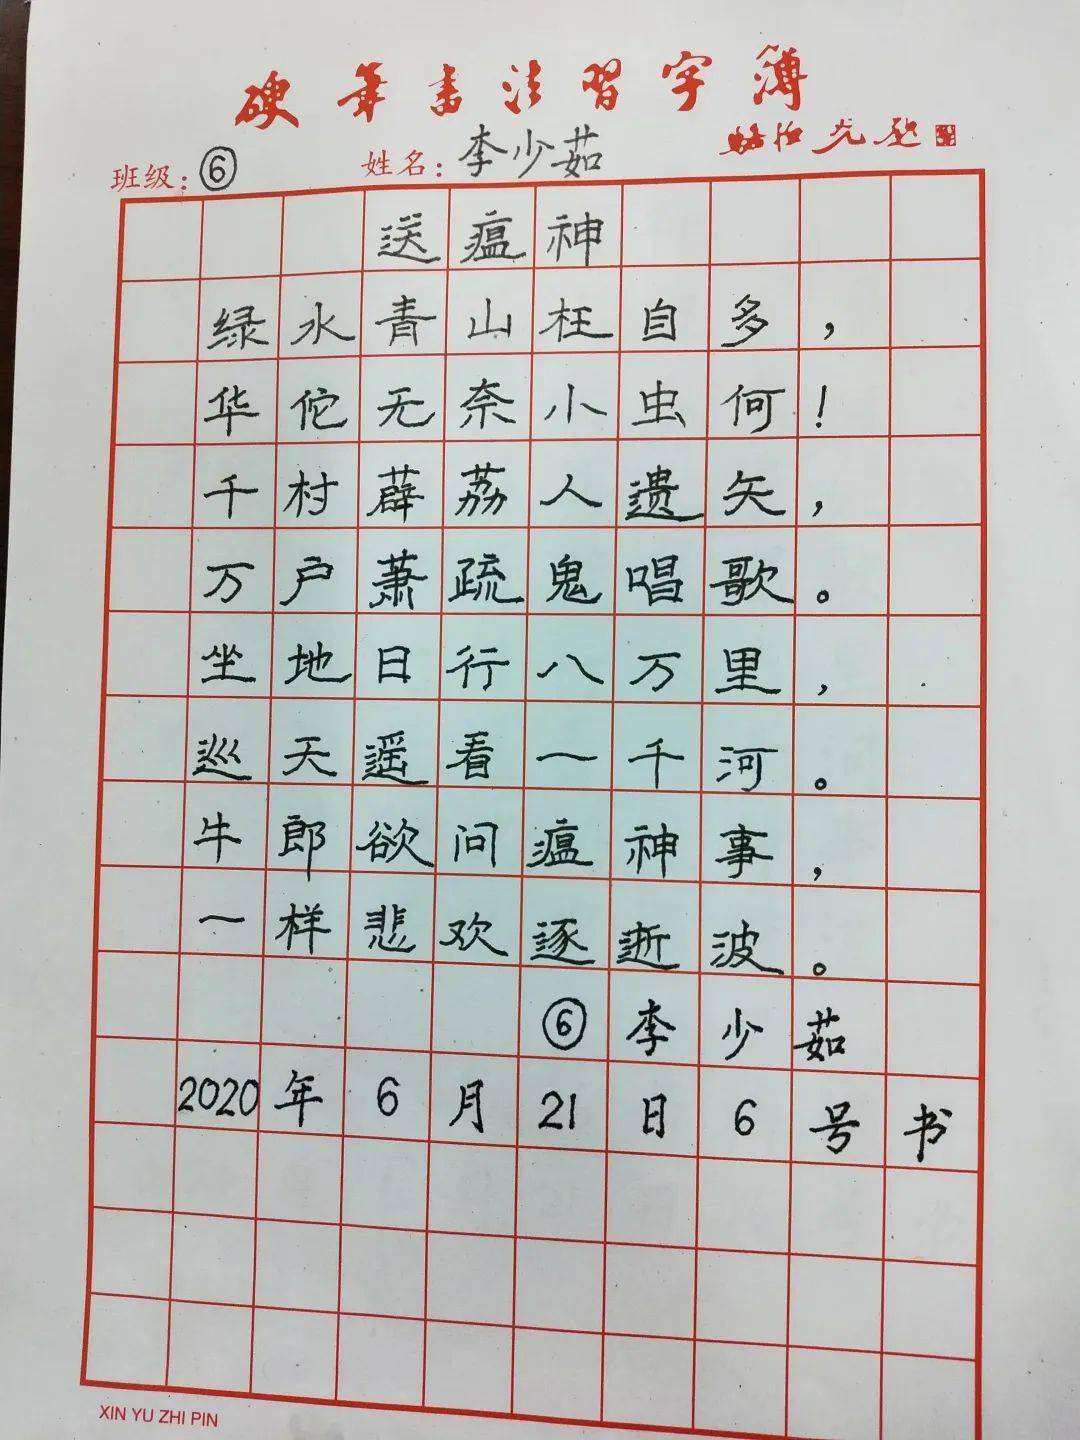 硬笔书法习字簿
班级：⑥ 姓名：李少茹
送瘟神
绿水青山枉自多，
华佗无奈小虫何！
千村薜荔人遗矢，
万户萧疏鬼唱歌。
坐地日行八万里，
巡天遥看一千河。
牛郎欲问瘟神事，
一样悲欢逐逝波。
⑥李少茹
2020年6月21日6号书
XIN YU ZHI PIN